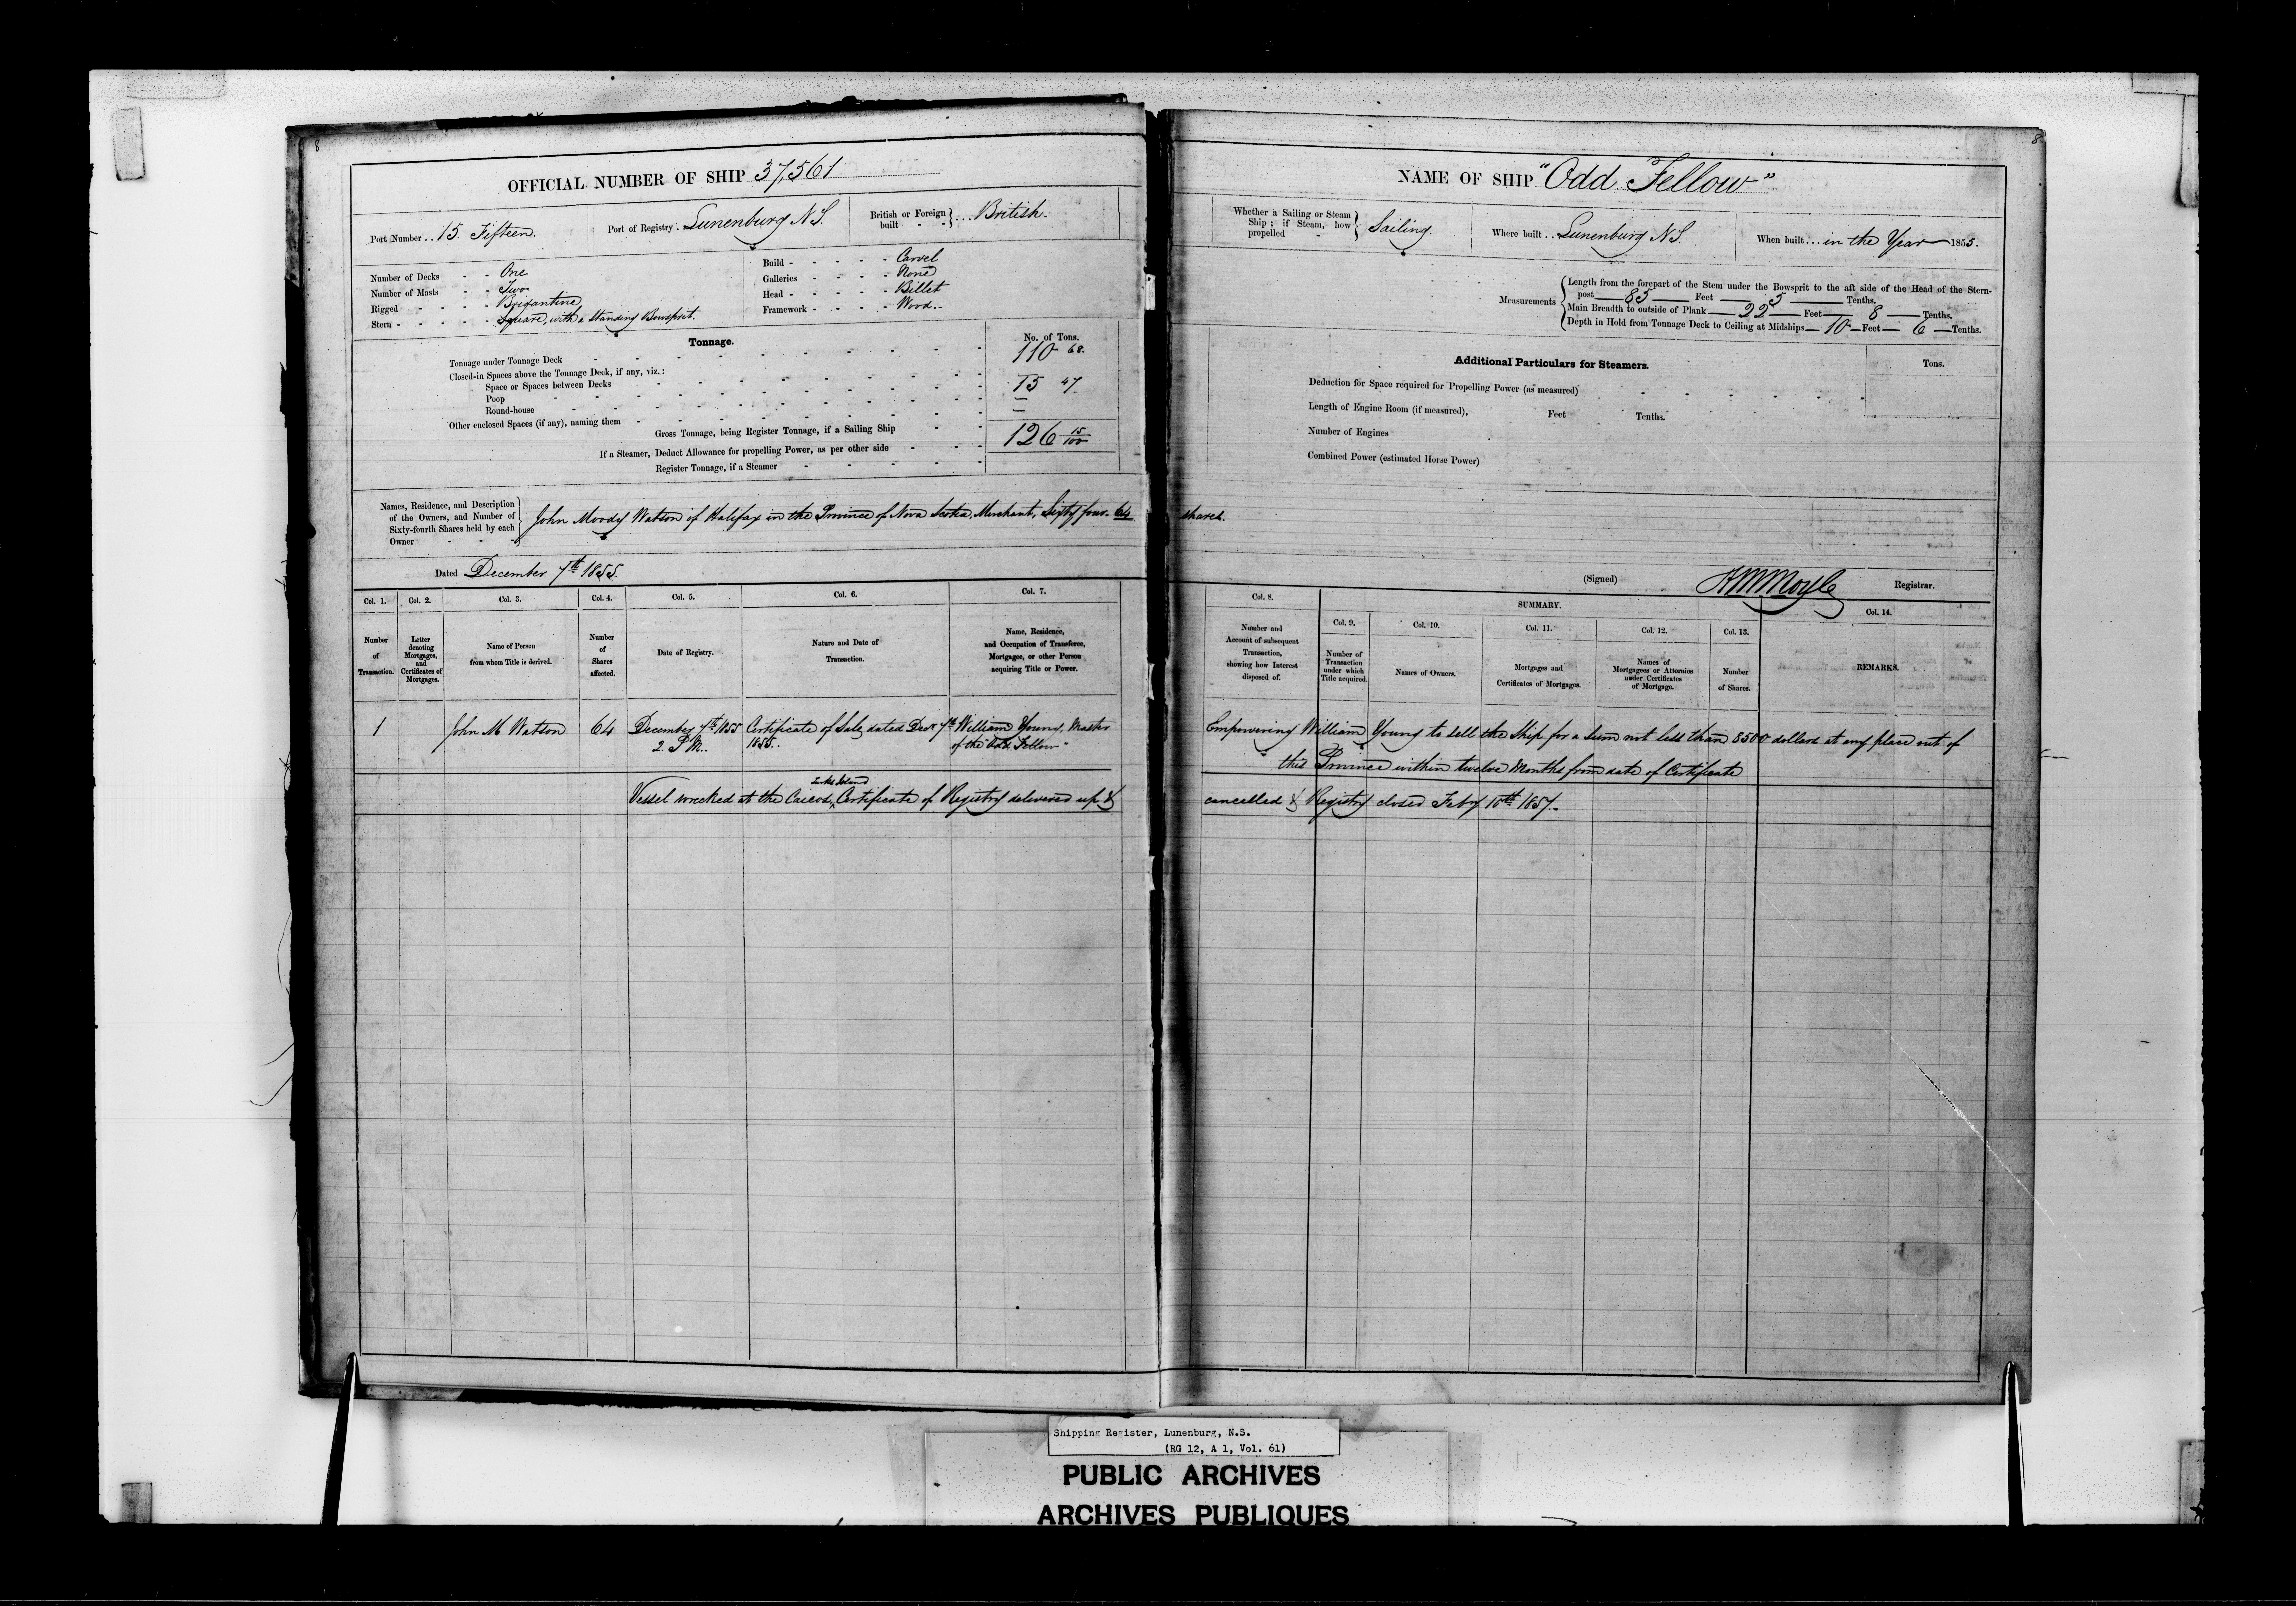 8
OFFICIAL NUMBER OF SHIP 37,561
Port Number . . 15. Fifteen.
Port of Registry . Lunenburg N.S.
British or Foreign built } . . . British.
Number of Decks - - One
Number of Masts - - Two
Rigged - - - - Brigantine
Stern - - - - - Square, with a standing Bowsprit.
Build - - - - - Carvel
Galleries - - - - None
Head - - - - - Billet
Framework - - - - Wood..
Tonnage.
No. of Tons.
Tonnage under Tonnage Deck 110 68.
Closed-in Spaces above the Tonnage Deck, if any, viz.:
Space or Spaces between Decks
Poop 15 47
Round-house —
Other enclosed Spaces (if any), naming them —
Gross Tonnage, being Register Tonnage, if a Sailing Ship 126 15/100
If a Steamer, Deduct Allowance for propelling Power, as per other side
Register Tonnage, if a Steamer
Names, Residence, and Description
of the Owners, and Number of
Sixty-fourth Shares held by each
Owner
John Moody Watson of Halifax in the Province of Nova Scotia, Merchant, Sixty four. 64 shares.
Dated December 7th 1855.
Col. 1. Col. 2. Col. 3. Col. 4. Col. 5. Col. 6. Col. 7.
Number of Transaction.
Letter denoting Mortgages, and Certificates of Mortgages.
Name of Person from whom Title is derived.
Number of Shares affected.
Date of Registry.
Nature and Date of Transaction.
Name, Residence, and Occupation of Transferee, Mortgagee, or other Person acquiring Title or Power.
1 John M Watson 64 December 7th 1855 Certificate of Sale, dated Decr 7th William Young, Master
2. P.M.. 1855.. of the "Odd Fellow"
Turks Island
Vessel wrecked at the Caicos, Certificate of Registry delivered up &
8
NAME OF SHIP "Odd Fellow"
Whether a Sailing or Steam Ship; if Steam, how propelled } Sailing.
Where built . . Lunenburg N.S.
When built . . . in the Year 1855.
Measurements
Length from the forepart of the Stem under the Bowsprit to the aft side of the Head of the Stern-
post 85 Feet 5 Tenths.
Main Breadth to outside of Plank 22 Feet 8 Tenths.
Depth in Hold from Tonnage Deck to Ceiling at Midships 10 Feet 6 Tenths.
Additional Particulars for Steamers.
Tons.
Deduction for Space required for Propelling Power (as measured)
Length of Engine Room (if measured), Feet Tenths.
Number of Engines
Combined Power (estimated Horse Power)
(Signed) Registrar.
Col. 8. SUMMARY.
Col. 9. Col. 10. Col. 11. Col. 12. Col. 13. Col. 14.
Number and Account of subsequent Transaction, showing how Interest disposed of.
Number of Transaction under which Title acquired.
Names of Owners.
Mortgages and Certificates of Mortgages.
Names of Mortgagees or Attornies under Certificates of Mortgage.
Number of Shares.
REMARKS.
Empowering William Young to sell the Ship for a sum not less than 8500 dollars at any place out of
this Province within twelve Months from date of Certificate
cancelled & Registry closed Feby 10th 1857.
Shipping Register, Lunenburg, N.S.
(RG 12, A 1, Vol. 61)
PUBLIC ARCHIVES
ARCHIVES PUBLIQUES